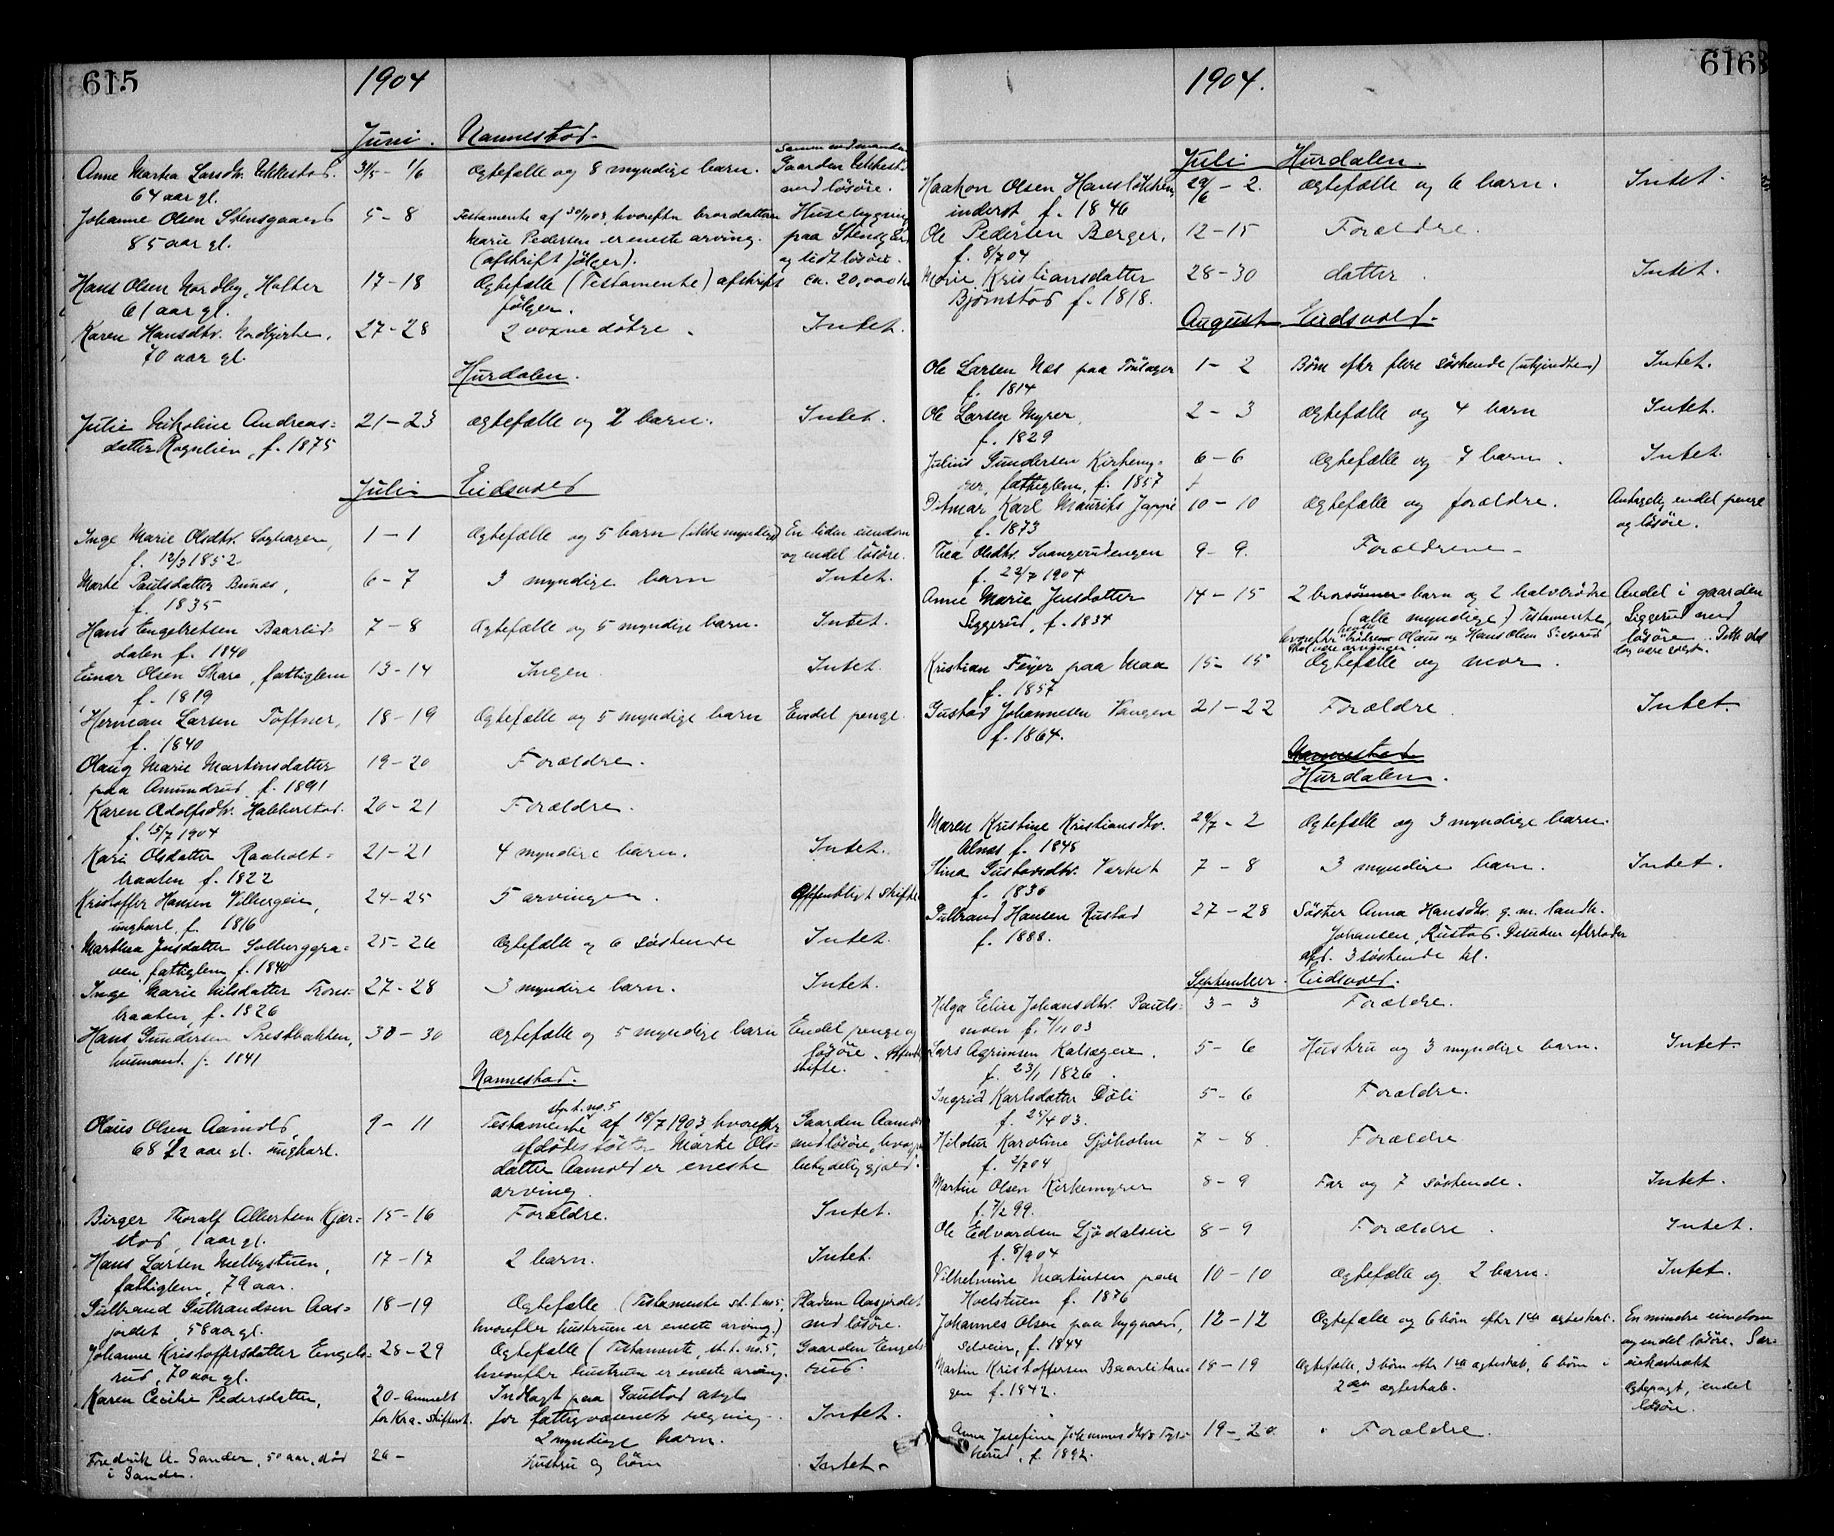 615
1904
Juni. Nannestad.
Anne Martha Larsdtr. Ukkestad. 31/5 - 1/6 Ægtefælle og 8 myndige barn. Gaarden Ukkest.
64 aar gl. med løsøre.
Johanne Olsen Stensgaard 5 - 8 Testamente af hvorefter brordatteren Husebygning
85 aar gl. Marie Pedersen er eneste arving. paa Stensg.
(afskrift følger). og lidt løsøre.
Hans Olsen Nordby, Holter 17 - 18 Ægtefælle (Testamente) afskrift ca. 20,000 kr
61 aar gl. følger.
Karen Hansdtr. 27 - 28 2 voxne døtre. Intet.
70 aar gl.
Hurdalen.
Julie Nikoline Andreas= 21 - 23 Ægtefælle og barn. Intet.
datter Rognlien, f. 1875
Juli Eidsvold
Inge Marie Olsdtr. 1 - 1 Ægtefælle og 5 barn (ikke myndige) En liden eiendom
f. 12/3 1852 og endel løsøre.
Marte Paulsdatter Bunes, 6 - 7 3 myndige barn Intet.
f. 1835
Hans Engebretsen Baarlid= 7 - 8 Ægtefælle og 5 myndige barn. Intet.
dalen f. 1840
Einar Olsen Skara, fattiglem 13 - 14 Ingen. Intet.
f. 1819
Herman Larsen Toftner, 18 - 19 Ægtefælle og 5 myndige barn Endel penge.
f. 1840
Olaug Marie Martinsdatter 19 - 20 Forældre.
paa Amundrud f. 1891
Karen Adolfsdtr. Habberstad. 20 - 21 Forældre.
f. 15/7 1904
Kari Olsdatter Raaholt= 21 - 21 4 myndige barn. Intet.
braaten f. 1822
Kristoffer Hansen 24 - 25 5 arvinger Offentligt skifte
ungkarl, f. 1816
Marthea Jensdatter Solberggra= 25 - 26 Ægtefælle og 6 søskende Intet.
ven, fattiglem f. 1840
Inge Marie Nilsdatter 27 - 28 3 myndige barn. Intet.
braaten, f. 1826
Hans Gundersen Prestbakken, 30 - 30 Ægtefælle og 5 myndige barn Endel penge og
husmand. f. 1841 løsøre.
skifte.
Nannestad.
Olaus Olsen Aamold, 9 - 11 Testamente af 18/7 1903 hvorefter Gaarden Aamold
68 1/2 aar gl. ungkarl. afdødes søster Marte Ols= med løsøre,
datter Aamold er eneste betydelig gjæld.
arving.
Birger Thoralf Albertsen Kjær= 15 - 16 Forældre. Intet.
stad, 1 aar gl.
Hans Larsen Melbystuen, 17 - 17 2 barn. Intet.
fattiglem, 79 aar.
Gulbrand Gulbrandsen Aas= 18 - 19 Ægtefælle (Testamente st.t. no 5, Pladsen Aasjordet
jordet, 58 aar gl. hvorefter hustruen er eneste arving.) med løsøre.
Johanne Kristoffersdatter Engels= 28 - 29 Ægtefælle (Testamente, st.t. no. 5, Gaarden Engels=
rud, 70 aar gl. hvorefter hustruen er eneste arving. rud.
Karen Cecilie Pedersdatter, 20 - Anmeldt Indlagt paa Gaustad asyl
for Kra. skifteret. for fattigvæsenets regning. Intet.
2 myndige barn.
Fredrik A. Sander, 50 aar, død 26 - Hustru og børn Intet.
i Sander.
616
1904.
Juli Hurdalen.
Haakon Olsen Hansløkken, 29/6 - 2. Ægtefælle og 6 barn. Intet.
inderst, f. 1846
Ole Pedersen Berger, 12 - 15 Forældre.
f. 8/7 04
Marie Kristiansdatter 28 - 30 datter. Intet.
Bjørnstad f. 1818.
August Eidsvold.
Ole Larsen Næs paa Tønsager 1 - 2 Børn efter flere søskende (ukjendte) Intet.
f. 1814
Ole Larsen Myrer, 2 - 3 Ægtefælle og 4 barn Intet.
f. 1829
Julius Gundersen Kirkemy= 6 - 6 Ægtefælle og 7 barn. Intet.
rer, fattiglem, f. 1857
Ditmar Karl Mauritz Jappé 10 - 10 Ægtefælle og forældre. Antagelig endel penge
f. 1873 og løsøre.
Thea Olsdtr. Svangerudengen 9 - 9. Forældrene.
f. 22/7 1904
Anne Marie Jensdatter 14 - 15 2 barn og 2 halvbrødre Andel i gaarden
Siggerud, f. 1834 (alle myndige) Testamente, Siggerud med
hvorefter Olaus og Hans Olsen Siggerud løsøre.
skal være arvinger.
Kristian Feyer paa Maa 15 - 15 Ægtefælle og mor.
f. 1857
Gustav Johannesen Vangen 21 - 22 Forældre. Intet.
f. 1864.
Nannestad
Hurdalen.
Maren Kristine Kristiansdtr. 29/7 - 2 Ægtefælle og 3 myndige barn.
Alnæs f. 1848
Stina Gustavsdtr. Verket 7 - 8 3 myndige barn. Intet.
f. 1836
Gulbrand Hansen Rustad 27 - 28 Søster Anna Hansdtr. g. m. landh.
f. 1888. Johansen, Rustad. Desuden efterlader
afd. 3 søskende til.
September. Eidsvold.
Helga Eline Johansdtr. Pauls= 3 - 3 Forældre.
moen f. 7/11 03
Lars Agrimsen Kalsegeie. 5 - 6 Hustru og 3 myndige barn. Intet.
f. 23/1 1826
Ingrid Karlsdatter Døli 5 - 6 Forældre.
f. 25/4 03.
Hildur Karoline Sjøholm 7 - 8. Forældre
f. 2/7 04
Martin Olsen Kirkemyrer 8 - 9 Far og 7 søskende. Intet.
f. 7/2 99.
Ole Edvardsen Ljødalseie 8 - 9 Forældre. Intet.
f. 8/9 04
Vilhelmine Martinsen paa 10 - 10 Ægtefælle og 2 barn. Intet.
Hoelstuen f. 1876
Johannes Olsen paa Nygaard, 12 - 12 Ægtefælle og 6 børn efter 1ste ægteskab. En mindre eiendom
selveier, f. 1844 og endel løsøre.
Martin Kristoffersen Baarlitan= 18 - 19 Ægtefælle, 3 børn efter 1ste ægteskab, 6 børn i
gen f. 1842. 2det ægteskab. Ægtepagt, endel
løsøre.
Anne Josefine Johannesdtr. 19 - 20 Forældre.
f. 1892.